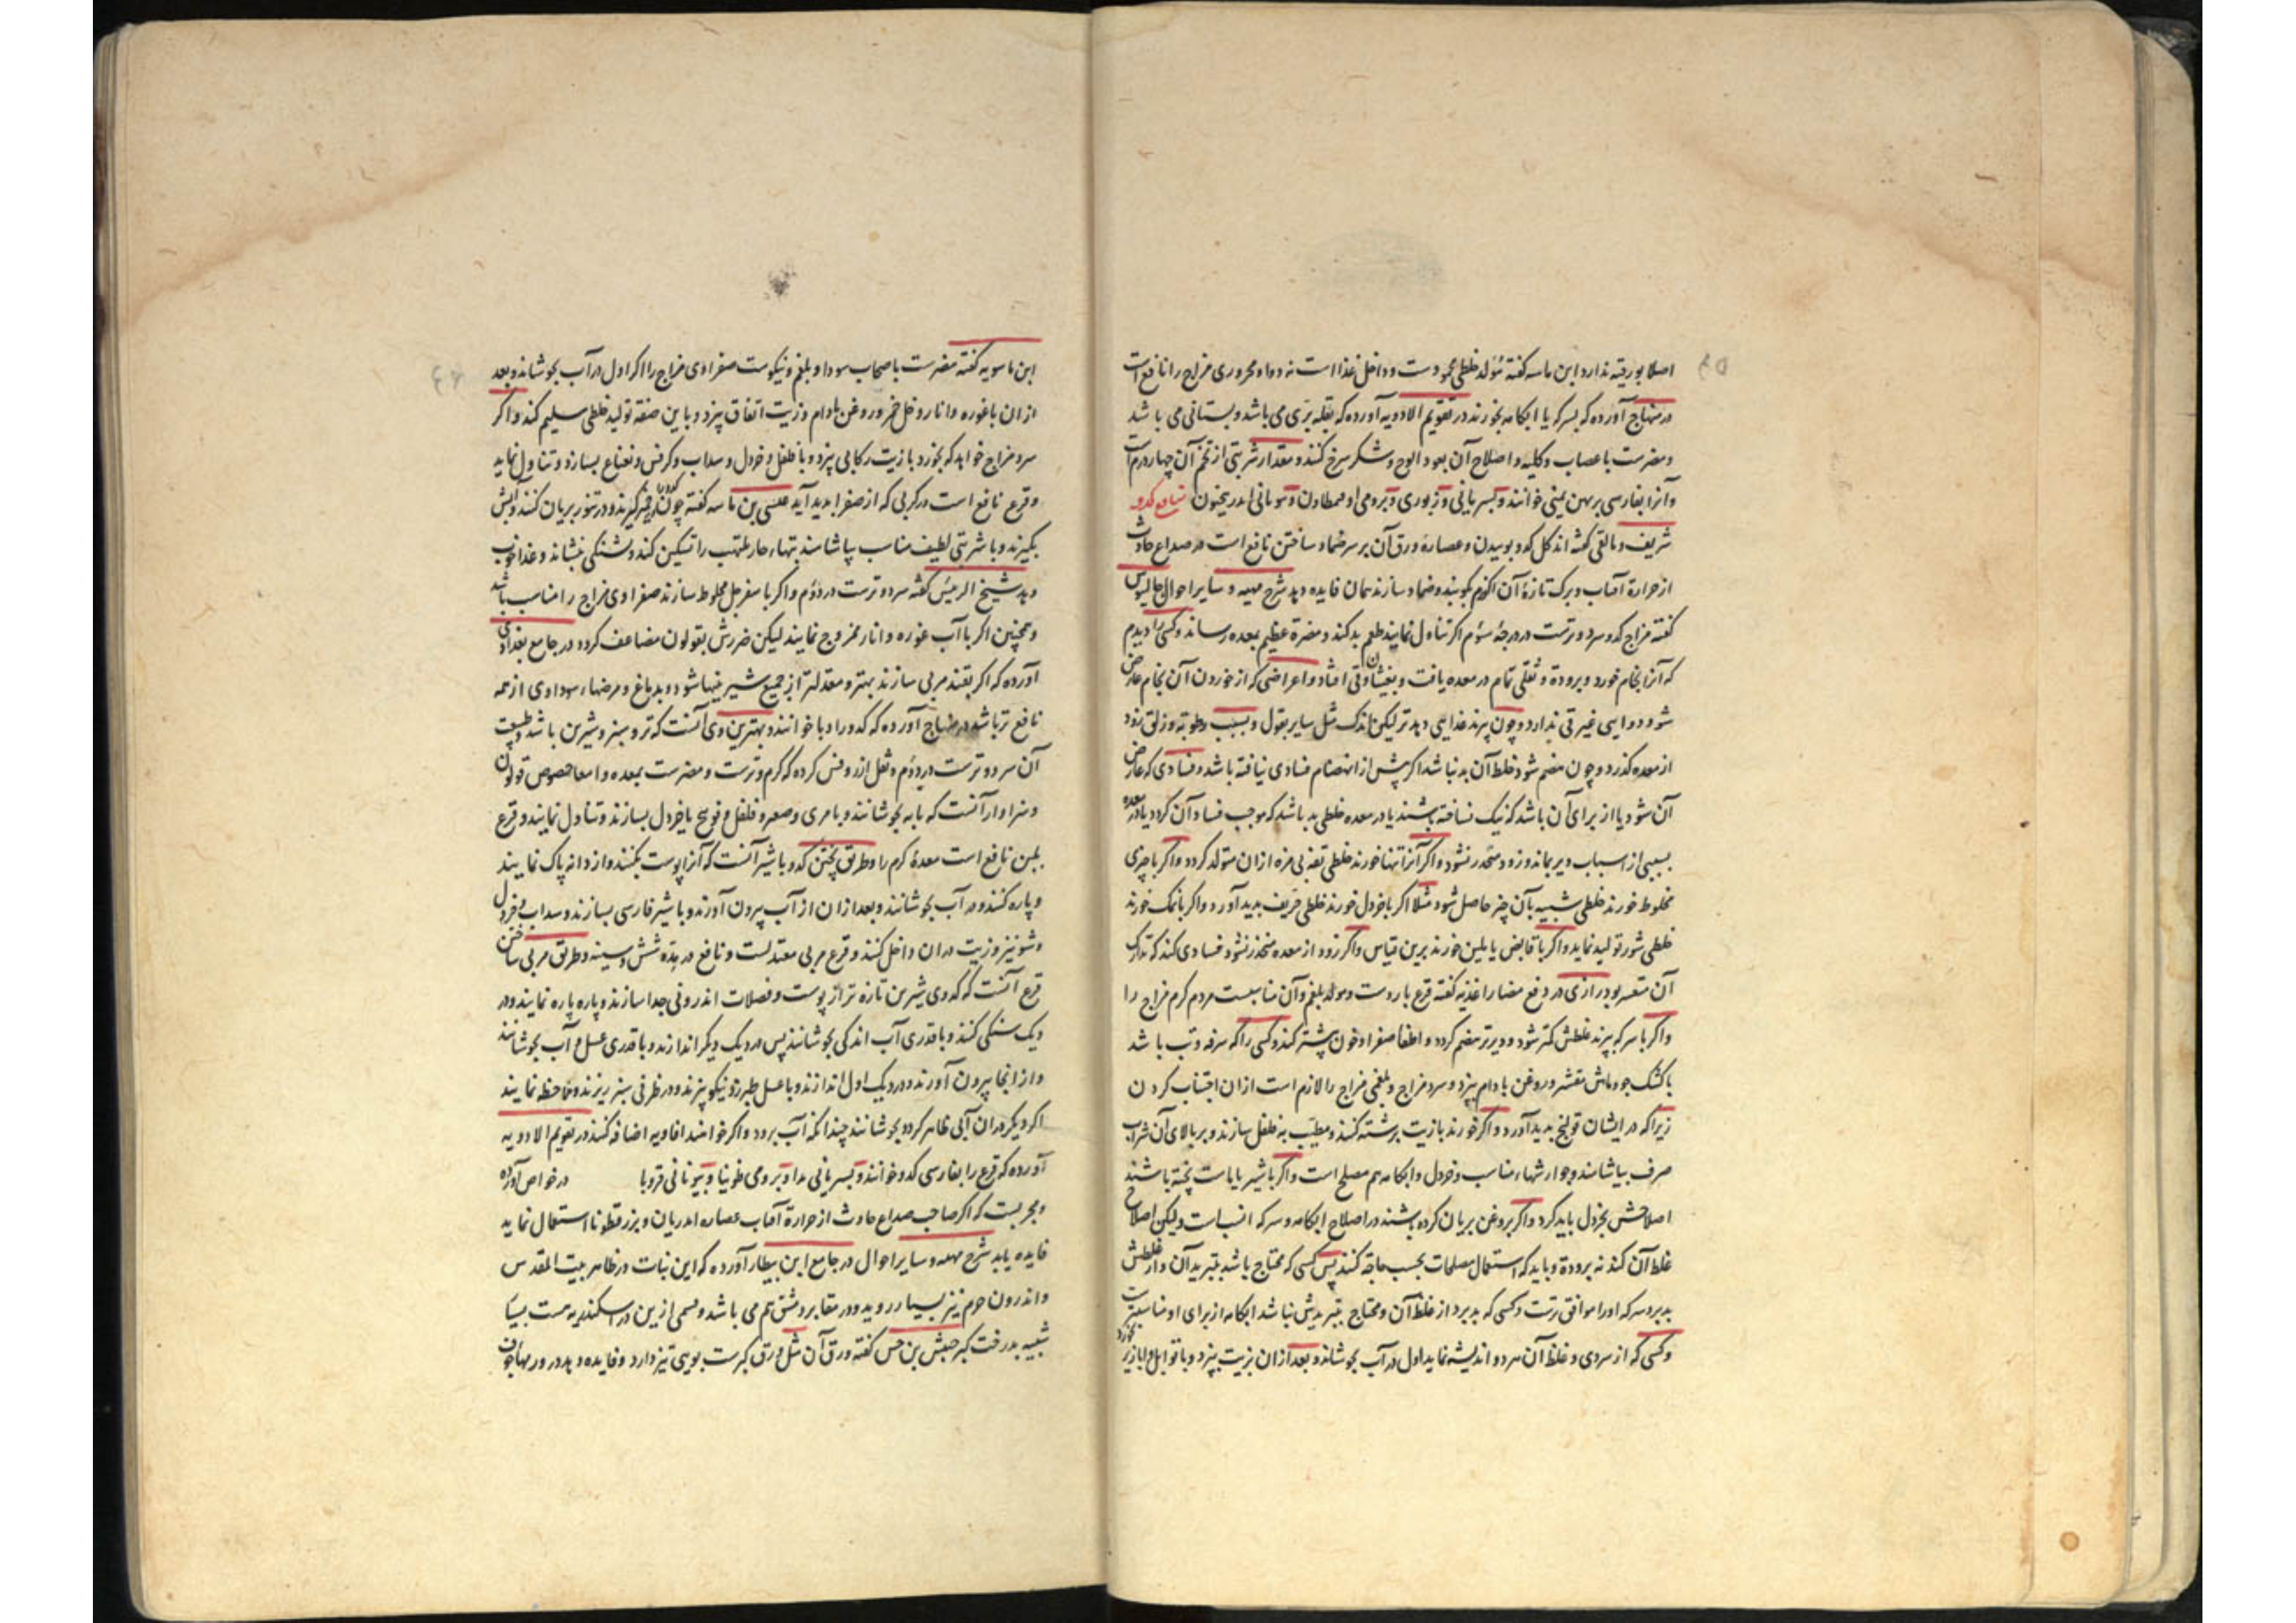 اصلا بورقیه ندارد ابن ماسه گفته مولد خلطی محمودست و داخل غذا است نه دوا و محروری مزاج را نافع است
در منهاج آورده که بسرکه یا ابکامه بخورند در تقویم الادویه آورده که بقله بری می باشد و بستانی می باشد
و مضرست باعصاب و کلیه و اصلاح آن بعود الوج و شکر سرخ کنند و مقدار شربتی از تخم آن چهار درم است
و آنرا بفارسی بهمن یمنی خوانند و بسریانی و برومی و بیونانی منافع کدو
شریف و مالقی گفته اند گل کدو بوییدن و عصارهٔ ورق آن بر سر ضماد ساختن نافع است در صداع حادث
از حرارة آفتاب و برک تازهٔ آن اگر بکوبند و ضماد سازند همان فایده دهد شرح مهیه و سایر احوال جالینوس
گفته مزاج کدو سرد و ترست در درجهٔ سوم اگر تناول نمایند طعم بد کند و مضرة عظیم بمعده رساند و کسی را دیدم
که آنرا بخام خورد و برودة و ثقلی تمام در معده یافت و بغثیان و قی افتاد و اعراضی که از خوردن آن بخام عارض
شود دوایی غیر قی ندارد و چون پزند غذایی دهد تر لیکن اندک مثل سایر بقول و بسبب رطوبة و زلق زود
از معده گذرد و چون هضم شود خلط آن بد نباشد اگر پیش از انهضام فسادی نیافته باشد و فسادی که عارض
آن شود یا از برای آن باشد که نیک نساخته باشند یا در معده خلطی بد باشد که موجب فساد آن گردد یا در معده
بسببی از اسباب دیر بماند و زود منحدر نشود و اگر آنرا تنها خورند خلطی تفه بی مزه ازان متولد گردد و اگر با چیزی
مخلوط خورند خلطی شبیه بآن چیز حاصل شود مثلا اگر با خردل خورند خلطی حریف بدید آورد و اگر با نمک خورند
خلطی شور تولید نماید و اگر با قابض یا ملین خورند برین قیاس و اگر زود از معده منحدر نشود فسادی کند که تدارک
آن متعسر بود رازی در دفع مضار اغذیه گفته قرع باردست و مولد بلغم و آن مناسبست مردم گرم مزاج را
و اگر با سرکه پزند غلظش کمتر شود و دیرتر هضم گردد و اطفا صفرا و خون بیشتر کند و کسی را که سرفه و تب باشد
با کشک جو و ماش مقشر و روغن بادام پزد و سرد مزاج و بلغمی مزاج را لازم است ازان اجتناب کردن
زیرا که در ایشان قولنج بدید آورد و اگر خورند بازیت برشته کنند و مطیب به فلفل سازند و بر بالای آن شراب
صرف بیاشامند و جوارشهاء مناسب و خردل و ابکامه هم مصلح است و اگر با شیر یا ماست پخته باشند
اصلاحش بخردل باید کرد و اگر بروغن بریان کرده باشند در اصلاح ابکامه و سرکه انسب است ولیکن اصلاح
غلظ آن کند نه برودة و باید که استعمال مصلحات بحسب حاجة کنند پس کسی که محتاج باشد بتبرید آن و از غلظش
بد برد سرکه اورا موافق ترست و کسی که بد برد از غلظ آن و محتاج بتبریدش نباشد ابکامه از برای او مناسبترست
و کسی که از سردی و غلظ آن هر دو اندیشه نماید اول در آب بجوشاند و بعد ازان بزیت بپزد و با توابل و ابازیر بخورد
ابن ماسویه گفته مضرست باصحاب سودا و بلغم و نیکوست صفراوی مزاج را اگر اول در آب بجوشاند و بعد
ازان با غوره و انار و خل خمر و روغن بادام و زیت اتفاق پزد و باین صفة تولید خلطی سلیم کند و اگر
سرد مزاج خواهد که بخورد بازیت رکابی پزد و با فلفل و خردل و سداب و کرفس و نعناع بسازد و تناول نماید
و قرع نافع است در کربی که از صفرا بدید آید عیسی بن ماسه گفته چون کدو را بخمیر گیرند و در تنور بریان کنند و آبش
بگیرند و با شربتی لطیف مناسب بیاشامند تبهاء حار ملتهب را تسکین کند و تشنگی بنشاند و غذا خوب
دهد شیخ الرئیس گفته سرد و ترست در دوم و اگر با سفرجل مخلوط سازند صفراوی مزاج را مناسب باشد
و همچنین اگر با آب غوره و انار ممزوج نمایند لیکن ضررش بقولون مضاعف گردد در جامع بغدادی
آورده که اگر بقند مربی سازند بهتر و معتدلتر از جمیع شیرینیها شود و بدماغ و مرضهاء سوداوی از همه
نافع تر باشد در منهاج آورده که کدو را دبا خوانند و بهترین وی آنست که تر و سبز و شیرین باشد و طبیعت
آن سرد و ترست در دوم و نقل از روفس کرده که گرم و ترست و مضرست بمعده و امعا خصوص قولون
و سزاوار آنست که بآبه بجوشانند و با مری و صعتر و فلفل و فودنج یا خردل بسازند و تناول نمایند و قرع
بلبن نافع است معدهٔ گرم را و طریق پختن کدو با شیر آنست که آنرا پوست بکنند و از دانه پاک نمایند
و پاره کنند و در آب بجوشانند و بعد ازان از آب بیرون آورند و با شیر فارسی بسازند و سداب و خردل
و شونیز و زیت دران داخل کنند و قرع مربی معتدلست و نافع در مثانه شش و سینه و طریق مربی ساختن
قرع آنست که کدوی شیرین تازه تر از پوست و فضلات اندرونی جدا سازند و پاره پاره نمایند و در
دیک سنگی کنند و با قدری آب اندکی بجوشانند پس در دیک دیگر اندازند و با قدری عسل و آب بجوشانند
و از انجا بیرون آورند و در دیک اول اندازند و با عسل طبرزد نیکو پزند و در ظرفی سبز ریزند و محافظه نمایند
اگر دیگر دران آبی ظاهر گردد بجوشانند چندانکه آب برود و اگر خواهند افاویه اضافه کنند در تقویم الادویه
آورده که قرع را بفارسی کدو خوانند و بسریانی و برومی و بیونانی قروبا در خواص آورده
و مجربست که اگر صاحب صداع حادث از حرارة آفتاب عصاره و بزرقطونا استعمال نماید
فایده یابد شرح مهیه و سایر احوال در جامع ابن بیطار آورده که این نبات در ظاهر بیت المقدس
و اندرون حرم نیز بسیار روید و در مقابر دمشق هم می باشد و قسمی ازین در اسکندریه هست بسیار
شبیه بدرخت کبر حبیش بن حسن گفته ورق آن مثل ورق کبرست بویی تیز دارد و فایده دهد در